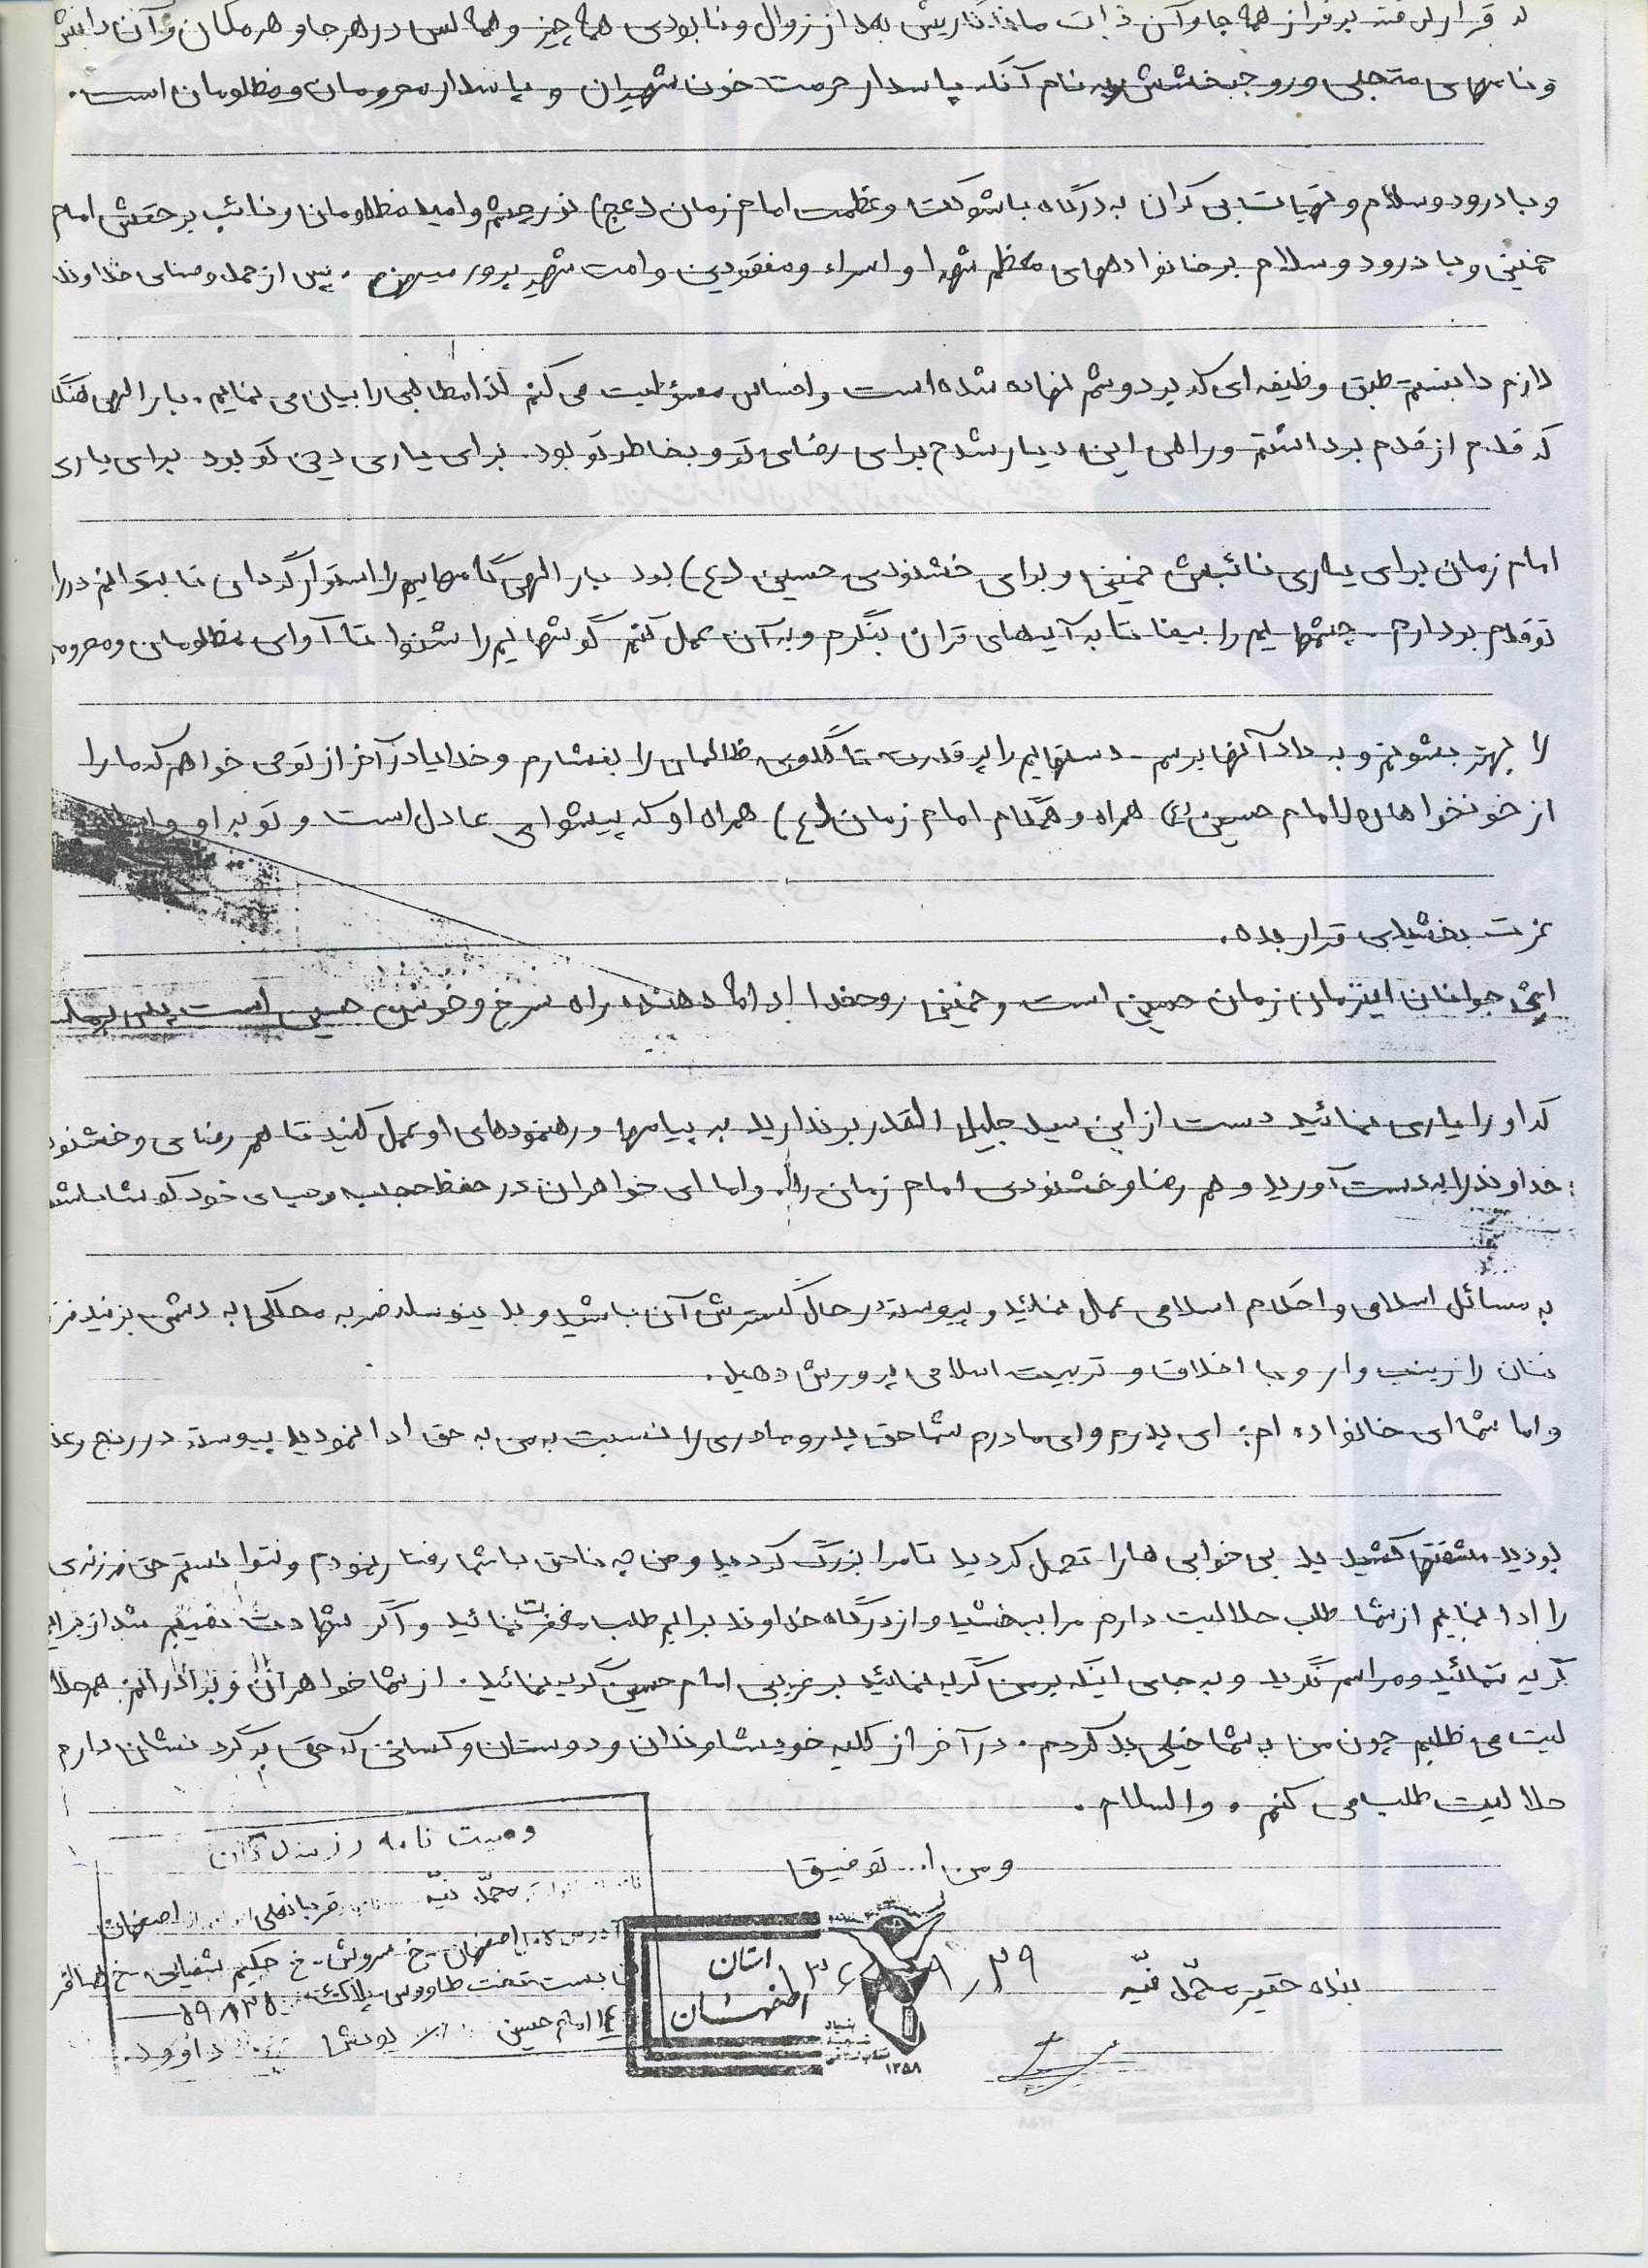 قرار گرفته بر فراز همه جا و آن ذات ماندگاریش بعد از زوال و نابودی همه چیز و همه کس در هر جا و هر مکان و آن دانش
و نامهای متجلی و روح بخشش و به نام آنکه پاسدار حرمت خون شهیدان و پاسدار محرومان و مظلومان است.
و با درود و سلام و تهیات بی کران به درگاه با شوکت و عظمت امام زمان (عج) نور چشم و امید مظلومان و نائب بر حقش امام
خمینی و با درود و سلام بر خانوادههای معظم شهدا و اسراء و مفقودین و امت شهید پرور میهنم. پس از حمد و ثنای خداوند
لازم دانستم طبق وظیفه ای که بر دوشم نهاده شده است و احساس مسؤلیت می کنم لذا مطالبی را بیان می نمایم. بار الهی
که قدم از قدم برداشتم و راهی این دیار شدم برای رضای تو و بخاطر تو بود. برای یاری دین تو بود برای یاری
امام زمان برای یاری نائبش خمینی و برای خشنودی حسین (ع) بود بار الهی گامهایم را استوار گردان تا بتوانم در راه
تو قدم بردارم. چشمهایم را بینا تا به آیههای قران بنگرم و به آن عمل کنم گوشهایم را شنوا تا آوای مظلومان و
را بهتر بشونم و به داد آنها برسم. دستهایم را پر قدرت تا گلوی ظالمان را بفشارم و خدایا در آخر از تو می خواهم که ما را
از خونخواهان امام حسین (ع) همراه و همگام امام زمان (ع) همراه او که پیشوای عادل است و تو به او
عزت بخشیدی قرار بده.
ای جوانان این زمان زمان حسین است و خمینی روحفدا ادامه دهنده راه سرخ و خونین حسین است پس بر ماست
که او را یاری نمائید دست از این سید جلیل القدر برندارید به پیامها و رهنمودهای او عمل کنید تا هم رضای و خشنودی
خداوند را به دست آورید و هم رضا و خشنودی امام زمان را. و اما ای خواهران در حفظ حجاب و حیای خود کوشا باشید
به مسائل اسلامی و احکام اسلامی عمل نمائید و پیوسته در حال گسترش آن باشید و بدینوسیله ضربه محکمی به دشمن بزنید
را زینب وار و با اخلاق و تربیت اسلامی پرورش دهید.
و اما شما ای خانواده ام: ای پدرم و ای مادرم شما حق پدر و مادری را نسبت به من به حق ادا نمودید پیوسته در رنج و
بودید مشقتها کشیدید بی خوابی ها را تحمل کردید تا مرا بزرگ کردید و من چه ناحق با شما رفتار نمودم و نتوانستم حق فرزندی
را ادا نمایم از شما طلب حلالیت دارم مرا ببخشید و از درگاه خداوند برایم طلب مغفرت نمائید و اگر شهادت نصیبم شد از برایم
گریه ننمائید و مراسم نگیرید و به جای اینکه بر من گریه نمائید بر غریبی امام حسین گریه نمائید. از شما خواهران و برادرانم هم حلا
لیت می طلبم چون من به شما خیلی بد کردم. در آخر از کلیه خویشاوندان و دوستان و کسانی که حق به گردنشان دارم
حلالیت طلب می کنم. والسلام.
و من ا... توفیق
بنده حقیر محمد نیه
وصیت نامه رزمندگان
محمد نیه قربانعلی اصفهان
آدرس کامل اصفهان - خ سروش - خ حکیم شفایی - خ صائب
بن بست تخت طاووس پلاک
۱۴ امام حسین یونس داوود
استان
اصفهان
۱۳۵۸